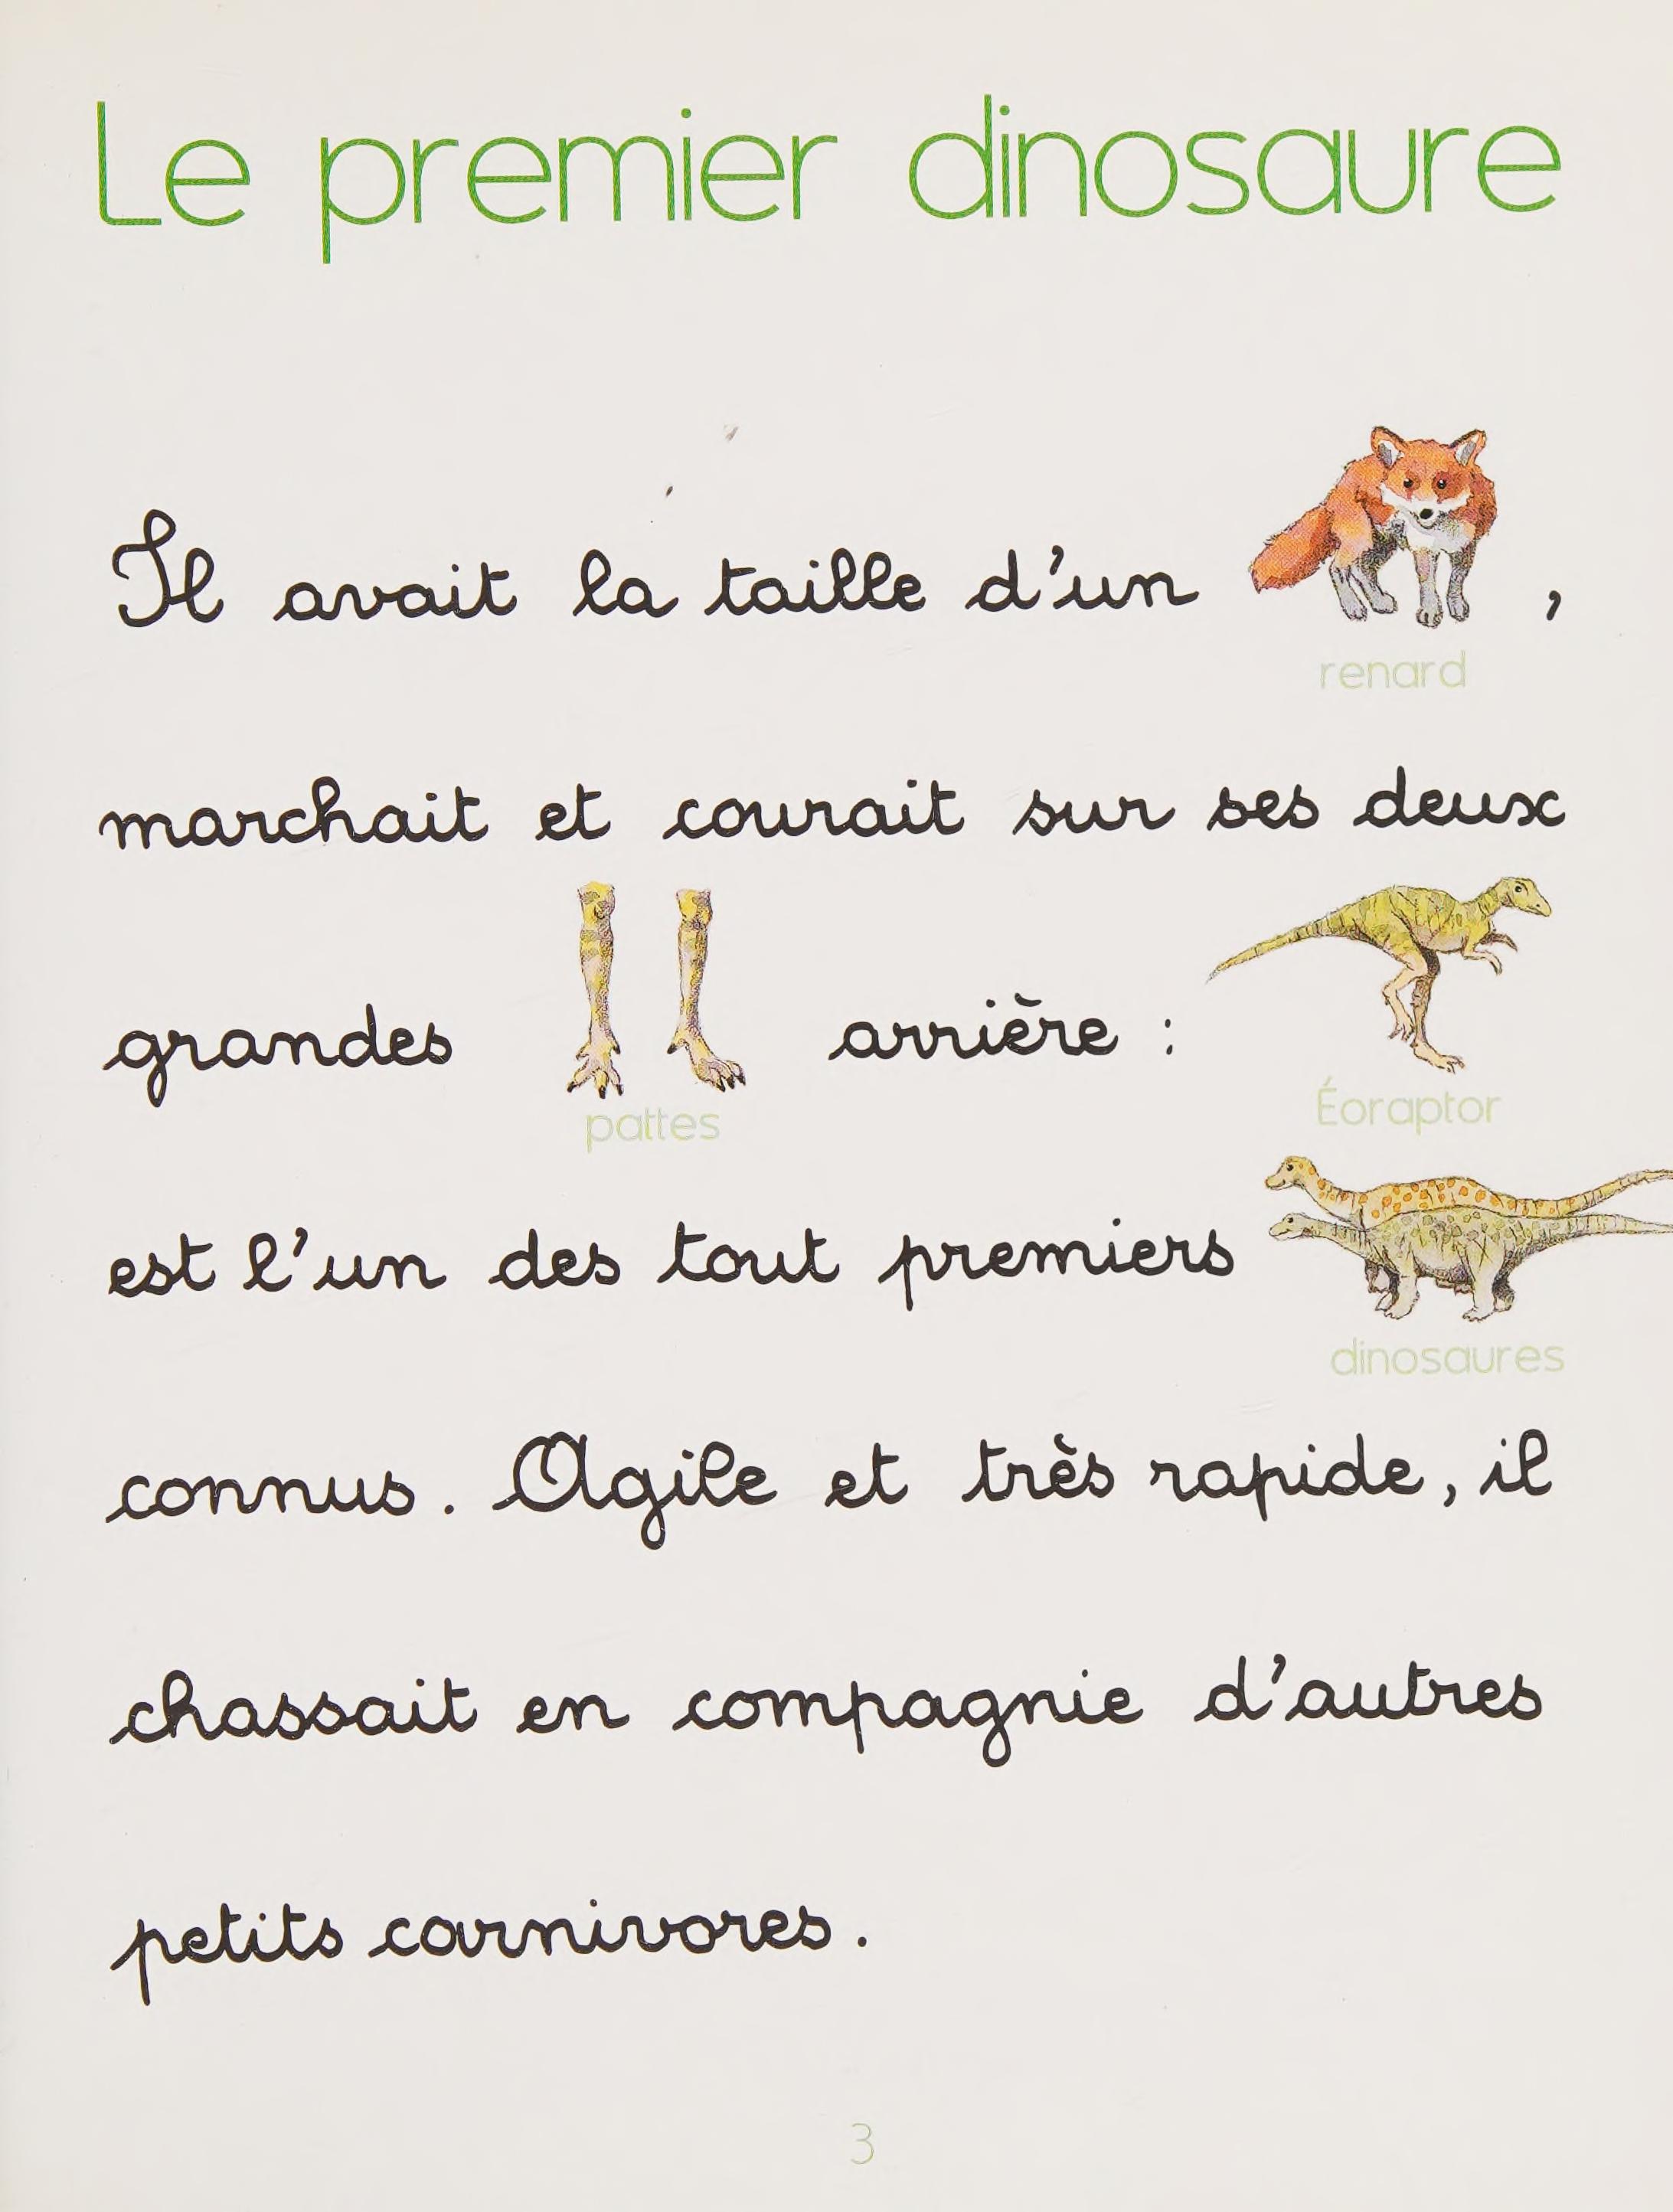 Le premier dinosaure
Il avait la taille d'un renard,
marchait et courait sur ses deux
grandes pattes arrière : Éoraptor
est l'un des tout premiers dinosaures
connus. Agile et très rapide, il
chassait en compagnie d'autres
petits carnivores.
3